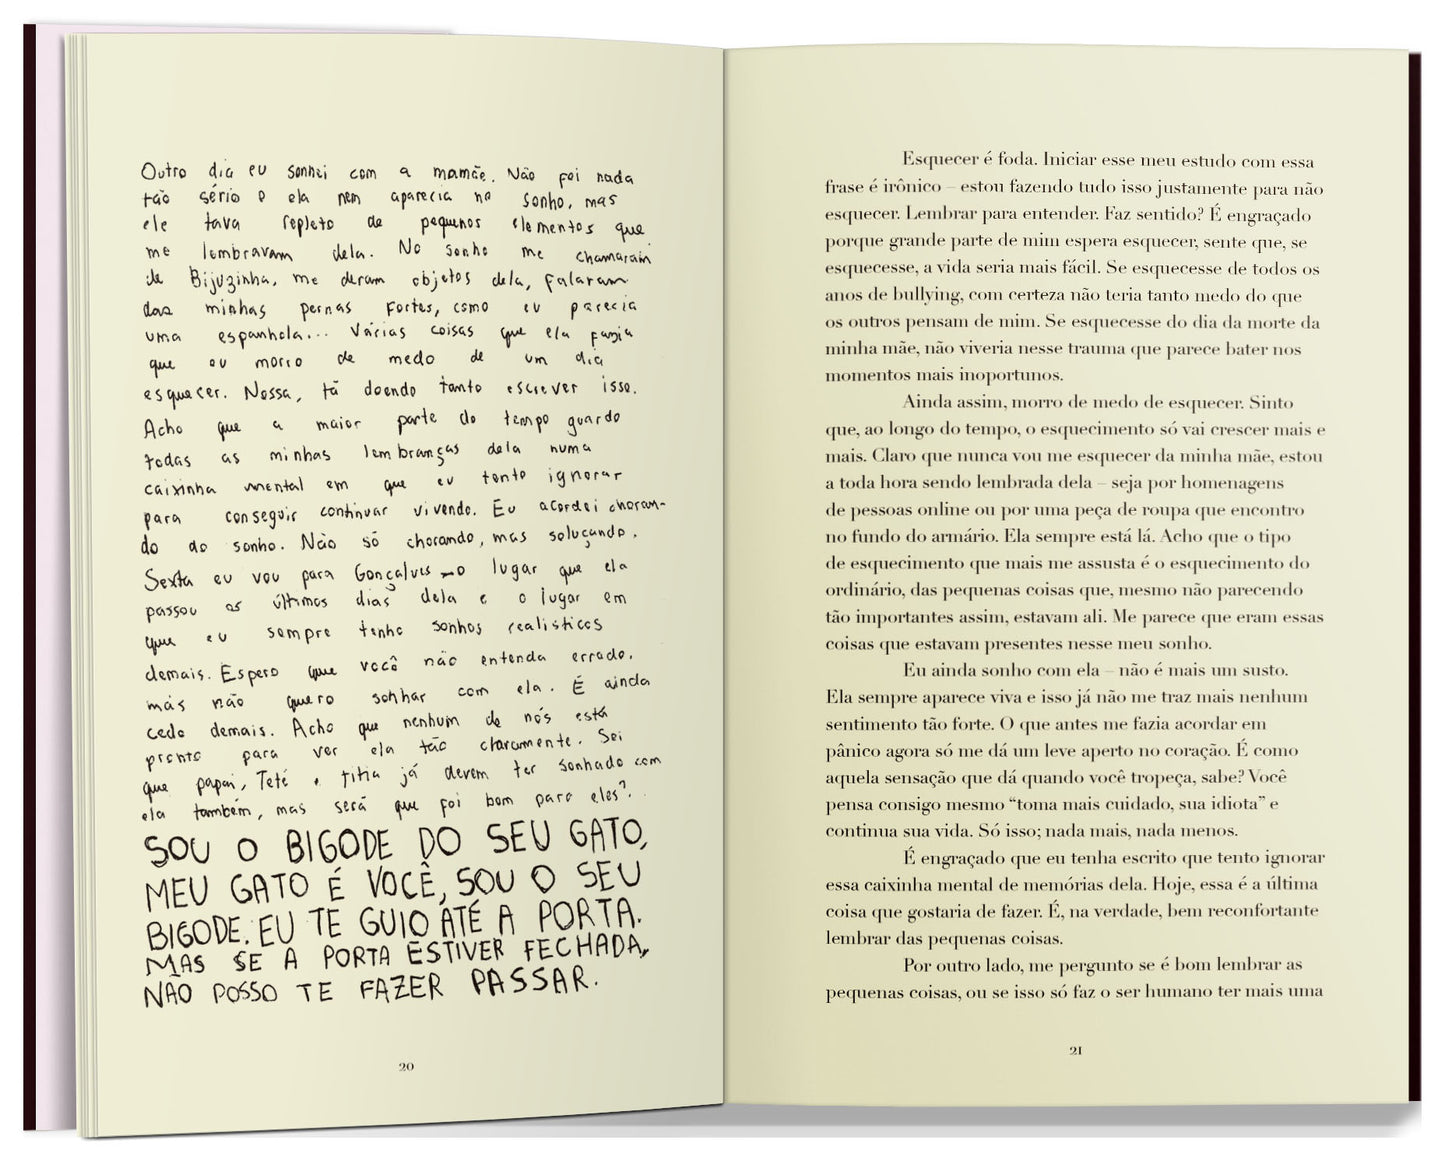 Outro dia eu sonhei com a mamãe. Não foi nada
tão sério e ela nem aparecia no sonho, mas
ele tava repleto de pequenos elementos que
me lembravam dela. No sonho me chamaram
de Bijuzinha, me deram objetos dela, falaram
das minhas pernas fortes, como eu parecia
uma espanhola... Várias coisas que ela fazia
que eu morro de medo de um dia
esquecer. Nossa, tá doendo tanto escrever isso.
Acho que a maior parte do tempo guardo
todas as minhas lembranças dela numa
caixinha mental em que eu tento ignorar
para conseguir continuar vivendo. Eu acordei choran-
do do sonho. Não só chorando, mas soluçando.
Sexta eu vou para Gonçalves – o lugar que ela
passou os últimos dias dela e o lugar em
que eu sempre tenho sonhos realísticos
demais. Espero que você não entenda errado,
mas não quero sonhar com ela. É ainda
cedo demais. Acho que nenhum de nós está
pronto para ver ela tão claramente. Sei
que papai, Teté e titia já devem ter sonhado com
ela também, mas será que foi bom para eles?
SOU O BIGODE DO SEU GATO,
MEU GATO É VOCÊ, SOU O SEU
BIGODE. EU TE GUIO ATÉ A PORTA.
MAS SE A PORTA ESTIVER FECHADA,
NÃO POSSO TE FAZER PASSAR.
20
Esquecer é foda. Iniciar esse meu estudo com essa
frase é irônico – estou fazendo tudo isso justamente para não
esquecer. Lembrar para entender. Faz sentido? É engraçado
porque grande parte de mim espera esquecer, sente que, se
esquecesse, a vida seria mais fácil. Se esquecesse de todos os
anos de bullying, com certeza não teria tanto medo do que
os outros pensam de mim. Se esquecesse do dia da morte da
minha mãe, não viveria nesse trauma que parece bater nos
momentos mais inoportunos.
Ainda assim, morro de medo de esquecer. Sinto
que, ao longo do tempo, o esquecimento só vai crescer mais e
mais. Claro que nunca vou me esquecer da minha mãe, estou
a toda hora sendo lembrada dela – seja por homenagens
de pessoas online ou por uma peça de roupa que encontro
no fundo do armário. Ela sempre está lá. Acho que o tipo
de esquecimento que mais me assusta é o esquecimento do
ordinário, das pequenas coisas que, mesmo não parecendo
tão importantes assim, estavam ali. Me parece que eram essas
coisas que estavam presentes nesse meu sonho.
Eu ainda sonho com ela – não é mais um susto.
Ela sempre aparece viva e isso já não me traz mais nenhum
sentimento tão forte. O que antes me fazia acordar em
pânico agora só me dá um leve aperto no coração. É como
aquela sensação que dá quando você tropeça, sabe? Você
pensa consigo mesmo “toma mais cuidado, sua idiota” e
continua sua vida. Só isso; nada mais, nada menos.
É engraçado que eu tenha escrito que tento ignorar
essa caixinha mental de memórias dela. Hoje, essa é a última
coisa que gostaria de fazer. É, na verdade, bem reconfortante
lembrar das pequenas coisas.
Por outro lado, me pergunto se é bom lembrar as
pequenas coisas, ou se isso só faz o ser humano ter mais uma
21